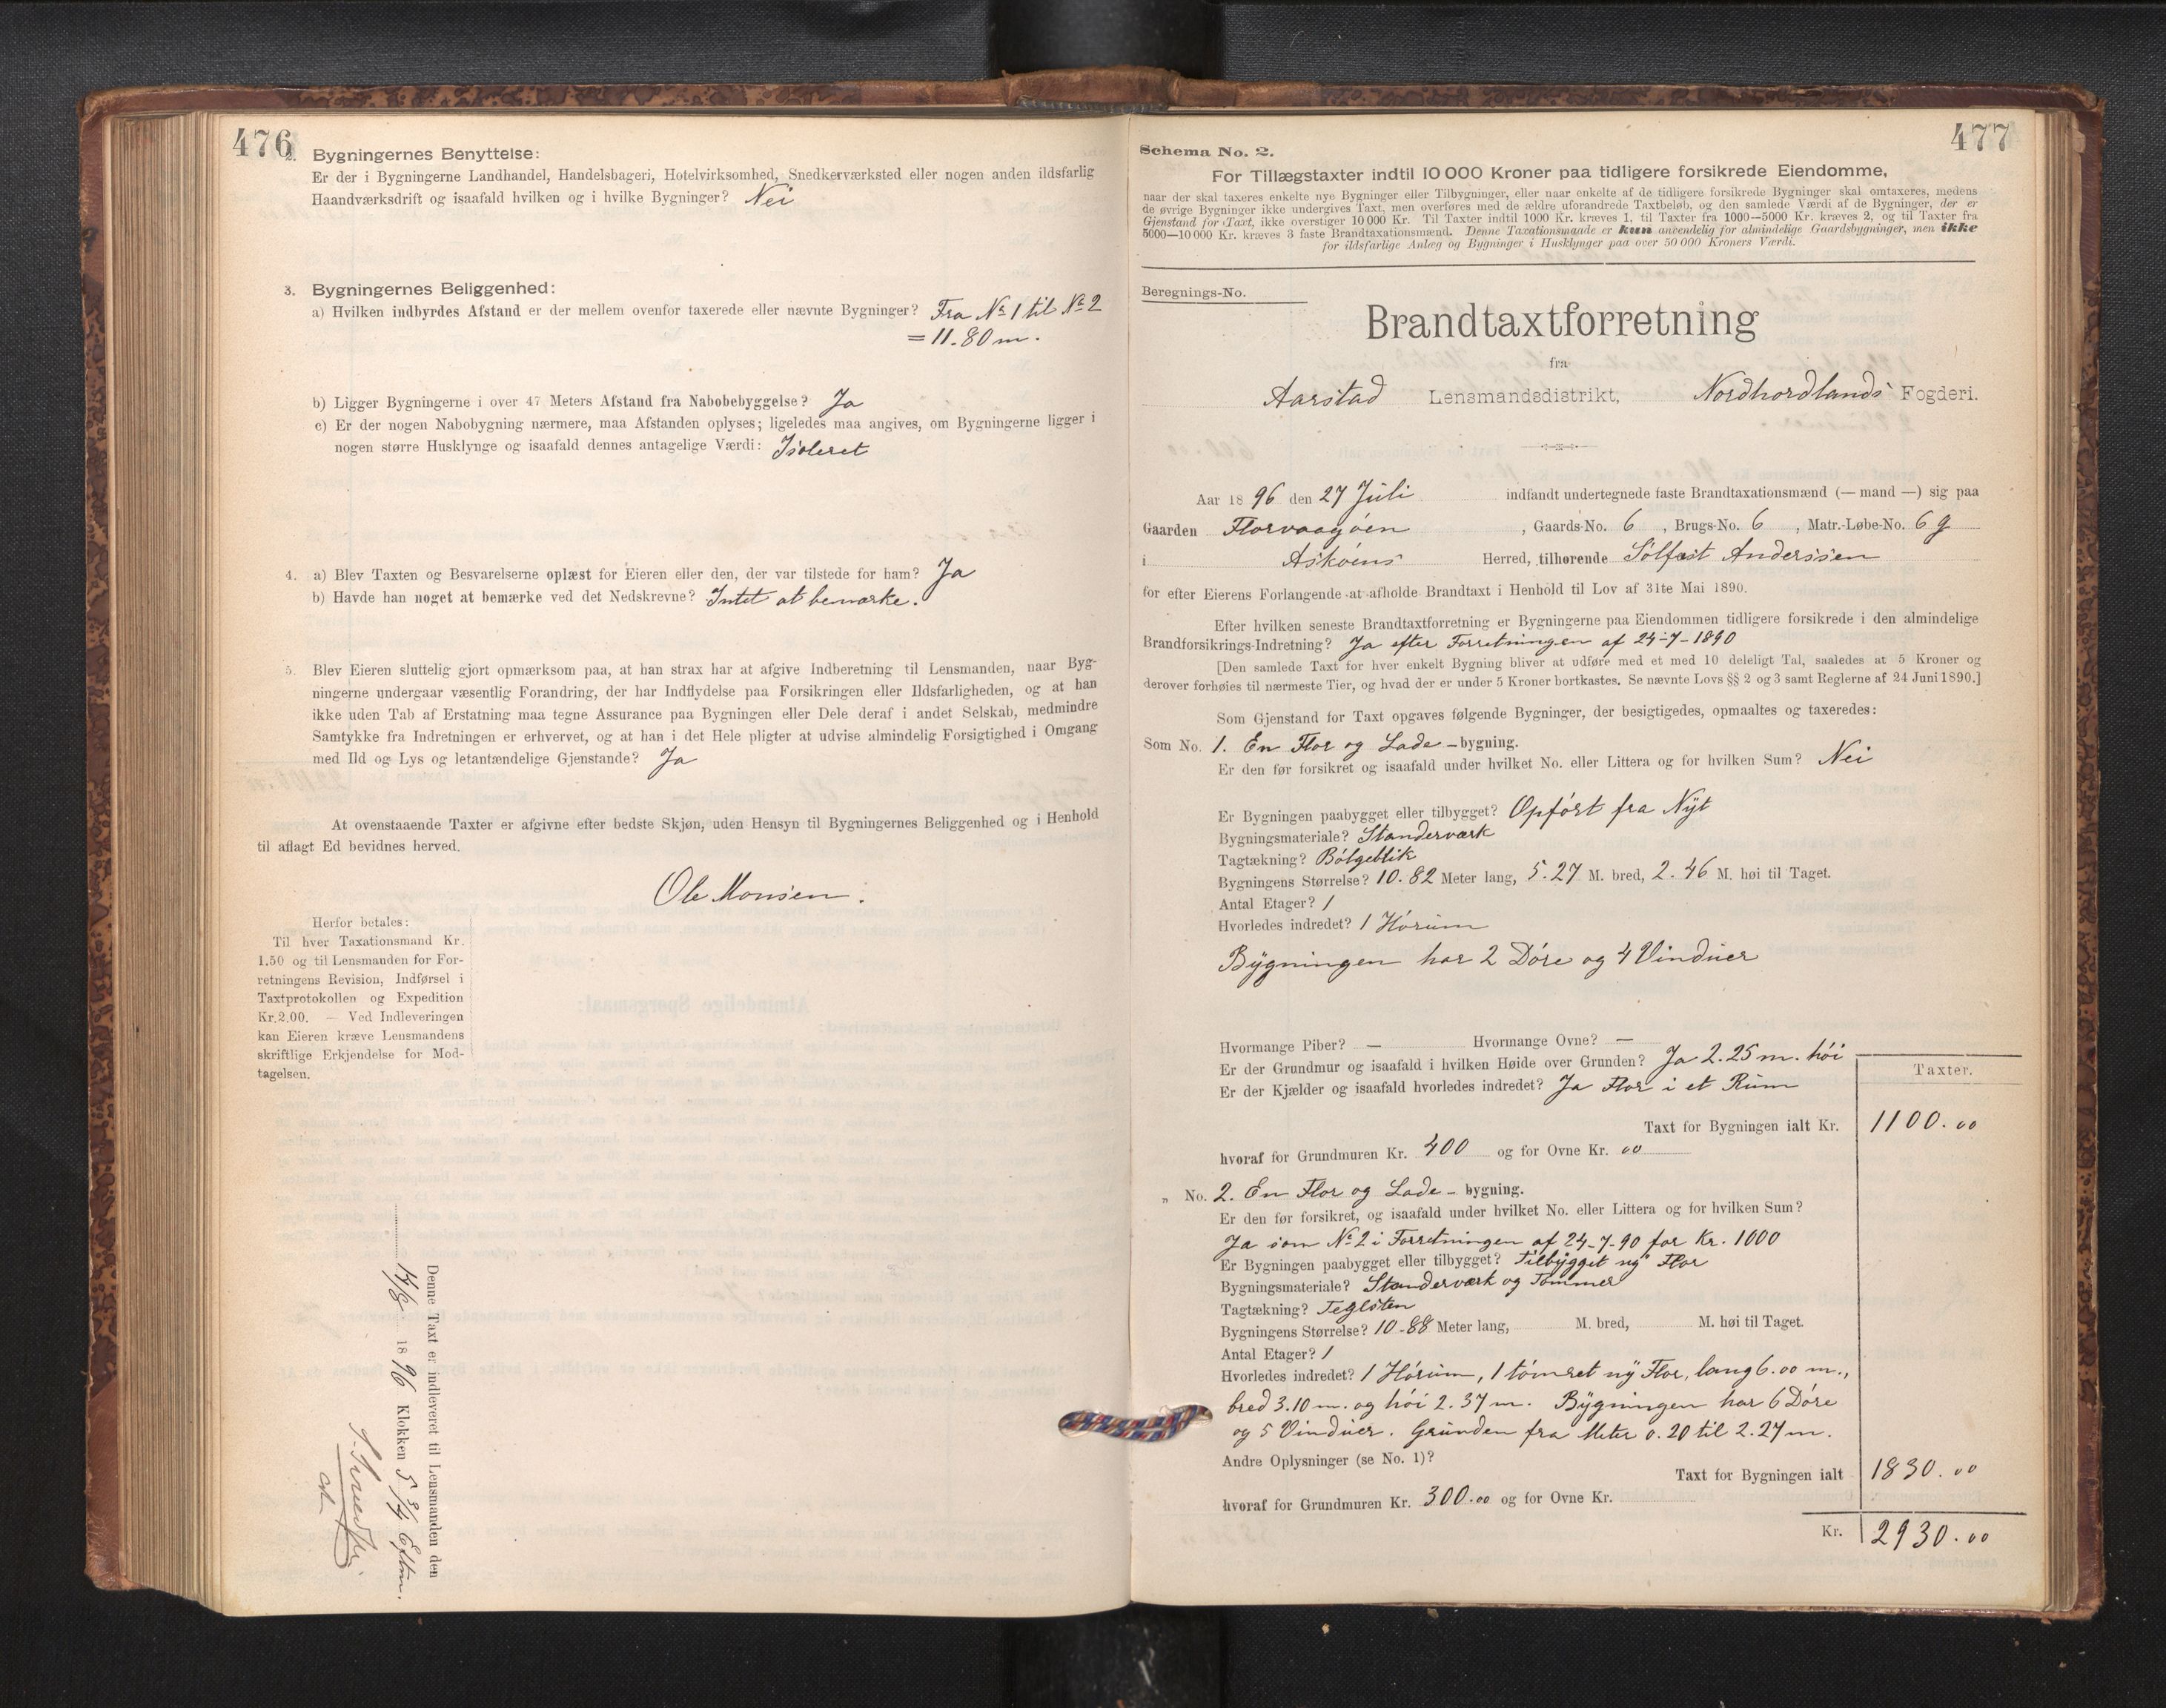 476
2. Bygningernes Benyttelse:
Er der i Bygningerne Landhandel, Handelsbageri, Hotelvirksomhed, Snedkerværksted eller nogen anden ildsfarlig
Haandværksdrift og isaafald hvilken og i hvilke Bygninger? Nei
3. Bygningernes Beliggenhed:
a) Hvilken indbyrdes Afstand er der mellem ovenfor taxerede eller nævnte Bygninger? Fra No 1 til No 2
= 11.80 m.
b) Ligger Bygningerne i over 47 Meters Afstand fra Nabobebyggelse? Ja
c) Er der nogen Nabobygning nærmere, maa Afstanden oplyses; ligeledes maa angives, om Bygningerne ligger i
nogen større Husklynge og isaafald dennes antagelige Værdi: Isoleret
4. a) Blev Taxten og Besvarelserne oplæst for Eieren eller den, der var tilstede for ham? Ja
b) Havde han noget at bemærke ved det Nedskrevne? Intet at bemærke.
5. Blev Eieren sluttelig gjort opmærksom paa, at han strax har at afgive Indberetning til Lensmanden, naar Byg-
ningerne undergaar væsentlig Forandring, der har Indflydelse paa Forsikringen eller Ildsfarligheden, og at han
ikke uden Tab af Erstatning maa tegne Assurance paa Bygningen eller Dele deraf i andet Selskab, medmindre
Samtykke fra Indretningen er erhvervet, og at han i det Hele pligter at udvise almindelig Forsigtighed i Omgang
med Ild og Lys og letantændelige Gjenstande? Ja
At ovenstaaende Taxter er afgivne efter bedste Skjøn, uden Hensyn til Bygningernes Beliggenhed og i Henhold
til aflagt Ed bevidnes herved.
Ole Monsen.
Herfor betales:
Til hver Taxationsmand Kr.
1.50 og til Lensmanden for For-
retningens Revision, Indførsel i
Taxtprotokollen og Expedition
Kr. 2.00. — Ved Indleveringen
kan Eieren kræve Lensmandens
skriftlige Erkjendelse for Mod-
tagelsen.
Denne Taxt er indleveret til Lensmanden den
14/8 1896 Klokken 5 3/4 Eftm.
477
Schema No. 2.
For Tillægstaxter indtil 10 000 Kroner paa tidligere forsikrede Eiendomme,
naar der skal taxeres enkelte nye Bygninger eller Tilbygninger, eller naar enkelte af de tidligere forsikrede Bygninger skal omtaxeres, medens
de øvrige Bygninger ikke undergives Taxt, men overføres med de ældre uforandrede Taxtbeløb, og den samlede Værdi af de Bygninger, der er
Gjenstand for Taxt, ikke overstiger 10 000 Kr. Til Taxter indtil 1000 Kr. kræves 1, til Taxter fra 1000—5000 Kr. kræves 2, og til Taxter fra
5000—10 000 Kr. kræves 3 faste Brandtaxationsmænd. Denne Taxationsmaade er kun anvendelig for almindelige Gaardsbygninger, men ikke
for ildsfarlige Anlæg og Bygninger i Husklynger paa over 50 000 Kroners Værdi.
Beregnings-No.
Brandtaxtforretning
fra
Aarstad Lensmandsdistrikt, Nordhordlands Fogderi.
Aar 1896 den 27 Juli indfandt undertegnede faste Brandtaxationsmænd (— mand —) sig paa
Gaarden Florvaagøen, Gaards-No. 6, Brugs-No. 6, Matr.-Løbe-No. 6 g
i Askøens Herred, tilhørende Solfast Anderssen
for efter Eierens Forlangende at afholde Brandtaxt i Henhold til Lov af 31te Mai 1890.
Efter hvilken seneste Brandtaxtforretning er Bygningerne paa Eiendommen tidligere forsikrede i den almindelige
Brandforsikrings-Indretning? Ja efter Forretningen af 24-7-1890
[Den samlede Taxt for hver enkelt Bygning bliver at udføre med et med 10 deleligt Tal, saaledes at 5 Kroner og
derover forhøies til nærmeste Tier, og hvad der er under 5 Kroner bortkastes. Se nævnte Lovs §§ 2 og 3 samt Reglerne af 24 Juni 1890.]
Som Gjenstand for Taxt opgaves følgende Bygninger, der besigtigedes, opmaaltes og taxeredes:
Som No. 1. En Flor og Lade -bygning.
Er den før forsikret og isaafald under hvilket No. eller Littera og for hvilken Sum? Nei
Er Bygningen paabygget eller tilbygget? Opført fra Nyt
Bygningsmateriale? Standerværk
Tagtækning? Bølgeblik
Bygningens Størrelse? 10.82 Meter lang, 5.27 M. bred, 2.46 M. høi til Taget.
Antal Etager? 1
Hvorledes indredet? 1 Hørum
Bygningen har 2 Døre og 4 Vinduer
Hvormange Piber? — Hvormange Ovne? —
Er der Grundmur og isaafald i hvilken Høide over Grunden? Ja 2.25 m. høi
Er der Kjælder og isaafald hvorledes indredet? Ja Flor i et Rum
Taxter.
Taxt for Bygningen ialt Kr. 1100.00
hvoraf for Grundmuren Kr. 400 og for Ovne Kr. 00
„ No. 2. En Flor og Lade - bygning.
Er den før forsikret, og isaafald under hvilket No. eller Littera og for hvilken Sum?
Ja som No 2 i Forretningen af 24-7-90 for Kr. 1000
Er Bygningen paabygget eller tilbygget? Tilbygget ny Flor
Bygningsmateriale? Standerværk og Tømmer
Tagtækning? Teglsten
Bygningens Størrelse? 10.88 Meter lang, M. bred, M. høi til Taget.
Antal Etager? 1
Hvorledes indredet? 1 Hørum, 1 tømret ny Flor, lang 6.00 m.,
bred 3.10 m. og høi 2.37 m. Bygningen har 6 Døre
og 5 Vinduer. Grunden fra Meter 0.20 til 2.27 m.
Andre Oplysninger (se No. 1)?
Taxt for Bygningen ialt 1830.00
hvoraf for Grundmuren Kr. 300.00 og for Ovne Kr.
Kr. 2930.00